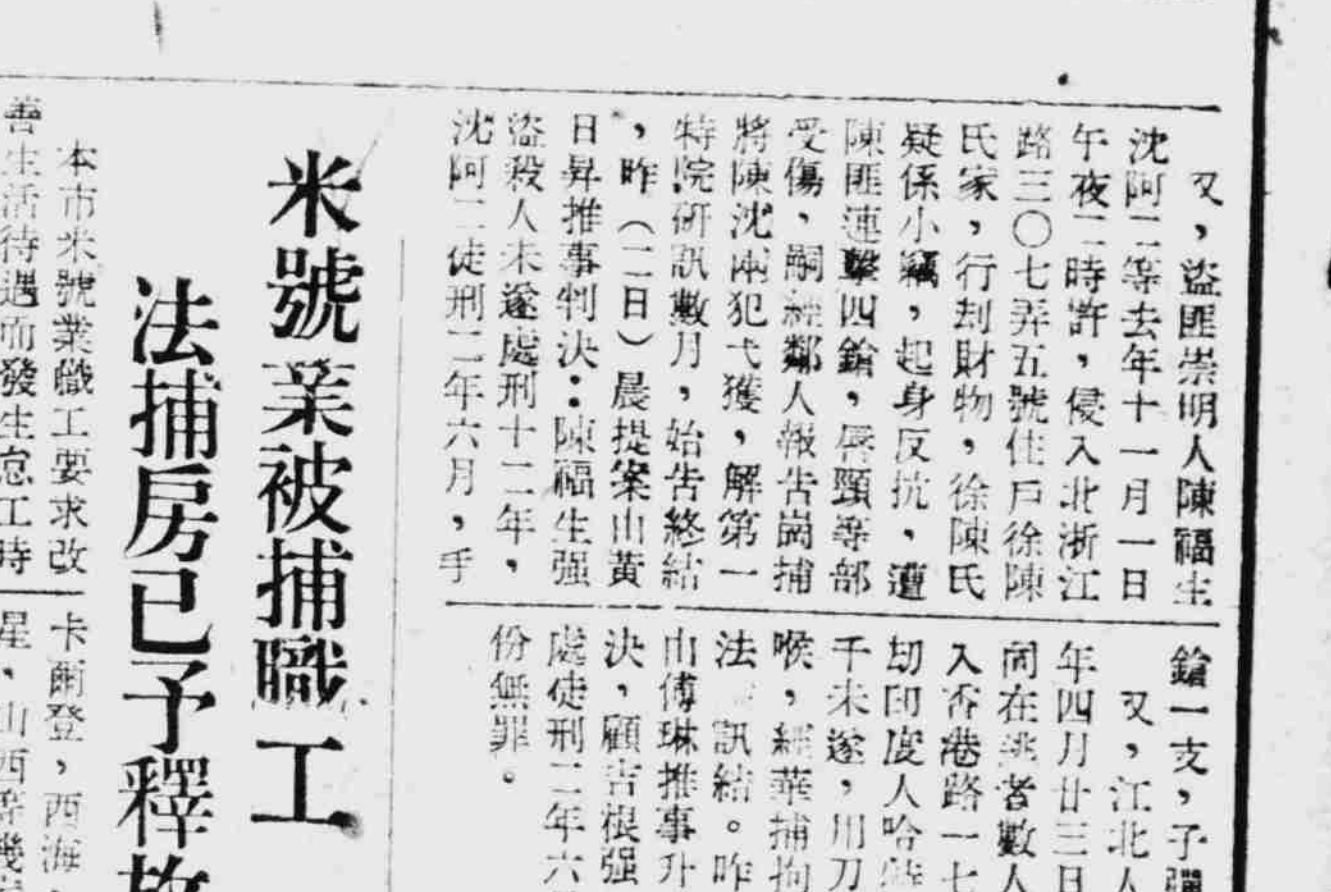 又，盜匪崇明人陳福生
沈阿二等去年十一月一日
午夜二時許，侵入北浙江
路三〇七弄五號住戶徐陳
氏家，行刦財物，徐陳氏
疑係小竊，起身反抗，遭
陳匪連擊四鎗，唇頸等部
受傷，嗣經鄰人報告崗捕
將陳沈兩犯弋獲，解第一
特院研訊數月，始告終結
，昨（二日）晨提案由黃
日昇推事判決：陳福生强
盜殺人未遂處刑十二年，
沈阿二徒刑二年六月，手
鎗一支，子彈
又，江北人
年四月廿三日
同在逃者數人
入香港路一七
刧印度人哈
千未遂，用刀
喉，經華捕拘
法 訊結。昨
由傅琳推事升
決，顧吉根强
處徒刑二年六
份無罪。
米號業被捕職工
法捕房已予釋放
本市米號業職工要求改
善生活待遇而發生怠工時
卡爾登，西海
星，山西